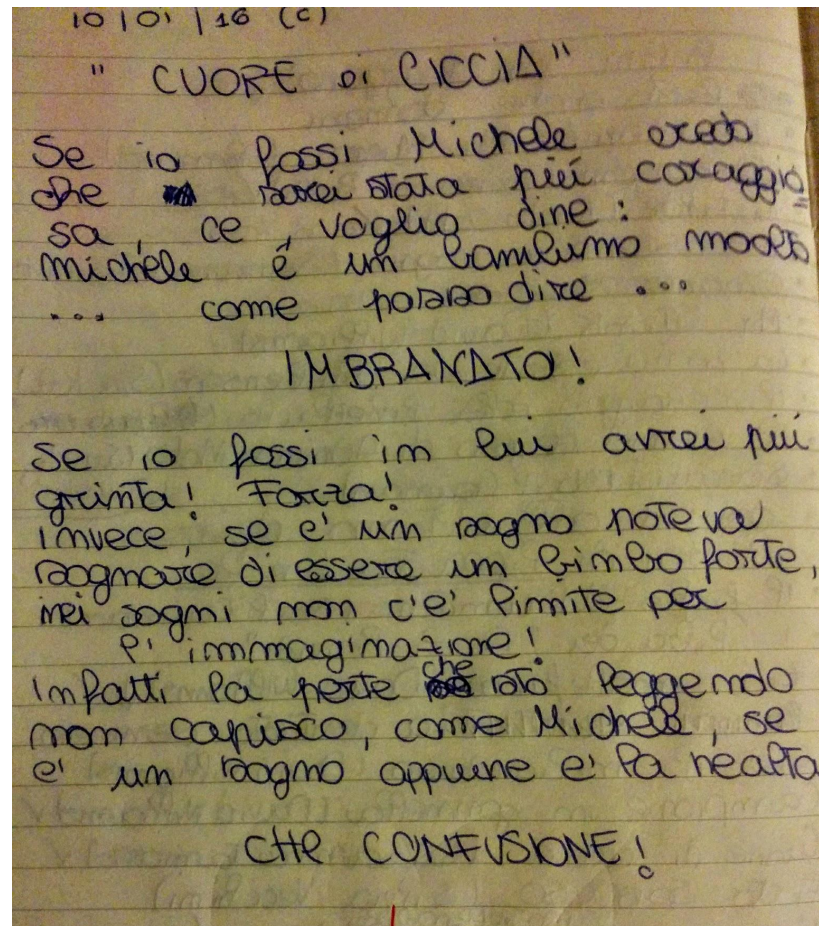 10/01/16 (C)
" CUORE di CICCIA"
Se io fossi Michele credo
che sarei stata più coraggio
sa, ce, voglio dire:
michele é un bambino molto
... come posso dire ...
IMBRANATO!
Se io fossi in lui avrei più
grinta! Forza!
invece, se e' un sogno poteva
sognare di essere un bimbo forte,
nei sogni non c'e' limite per
l'immaginazione!
Infatti la parte che sto leggendo
non capisco, come Michele, se
e' un sogno oppure e' la realta
CHE CONFUSIONE!